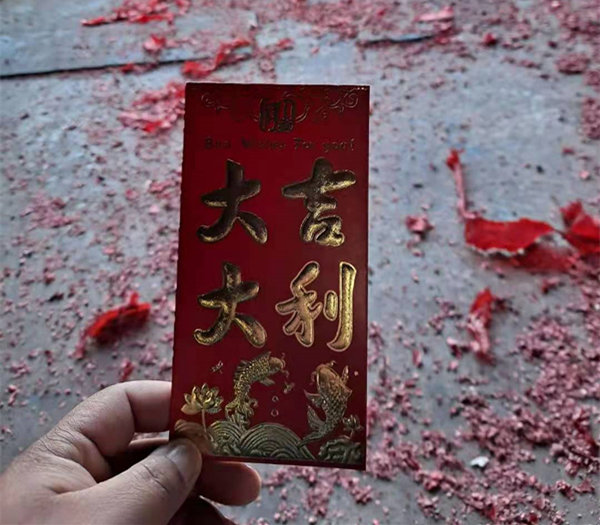 Best Wishes For you!
大吉
大利